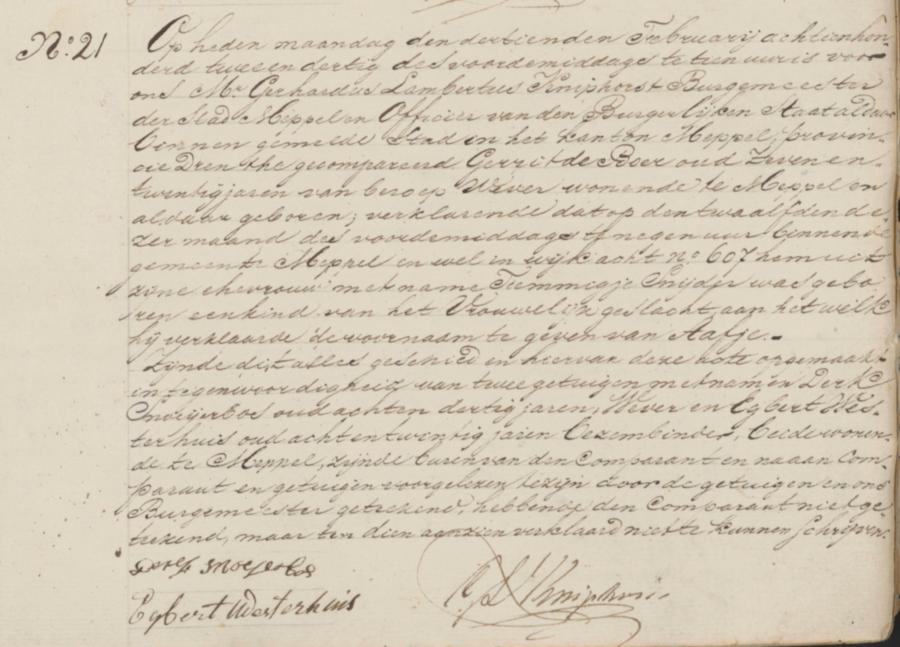 No: 21
Op heden maandag den dertienden Februarij achtienhon-
derd twee en dertig des voordemiddags te tien uur is voor
ons Mr. Gerhardus Lambertus Kniphorst Burgemeester
der Stad Meppel en Officier van den Burgerlijken Staat aldaar
binnen gemelde Stad in het kanton Meppel, provin-
cie Drenthe gecompareerd Gerrit de Boer oud Zeven en-
twintig jaren van beroep Wever wonende te Meppel en
aldaar geboren; verklarende dat op den twaalfden de-
zer maand des voordemiddags te negen uur binnen de
gemeente Meppel en wel in wijk acht no 607 hem uit
zijne ehevrouw met name Jummigje Snijder was gebo-
ren een kind van het Vrouwelijk geslacht, aan het welk
hij verklaarde de voornaam te geven van Aafje.-
Zijnde dit alles geschied en hiervan deze acte opgemaakt
in tegenwoordigheid van twee getuigen met namen Derk
Snoeijerbos oud acht en dertig jaren, Wever en Egbert Wes-
terhuis oud acht en twintig jaren bezembinder, beide wonen-
de te Meppel, zijnde buren van den Comparant en na aan Com-
parant en getuigen voorgelezen te zijn door de getuigen en ons
Burgemeester getekend, hebbende den Comparant niet ge
teekend, maar ten dien aanzien verklaard niet te kunnen schrijven.
Egbert Westerhuis
G L Kniphorst